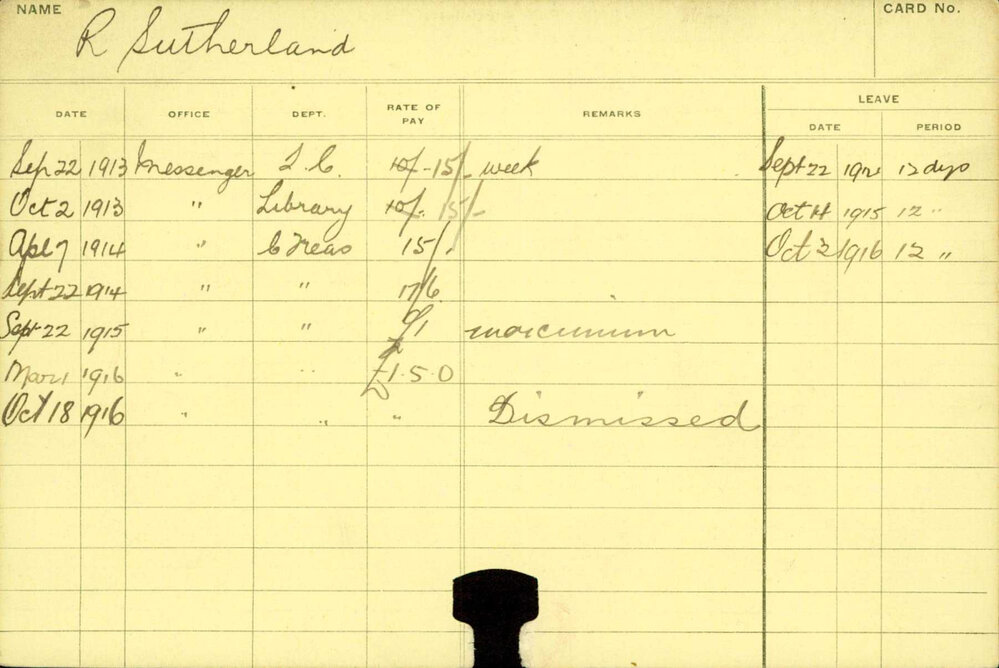 NAME
CARD No.
R Sutherland
DATE OFFICE DEPT. RATE OF PAY REMARKS LEAVE
DATE PERIOD
Sep 22 1913 Messenger T. C. 10/- 15/- week Sept 22 12 days
Oct 2 1913 " Library 10/- 15/- Oct 4 1915 12 "
Apl 7 1914 " C Treas 15/- Oct 2 1916 12 "
Sept 22 1914 " " 17/6
Sept 22 1915 " " £1 maximum
Mar 1 1916 " " £1.5.0
Oct 18 1916 " " " Dismissed